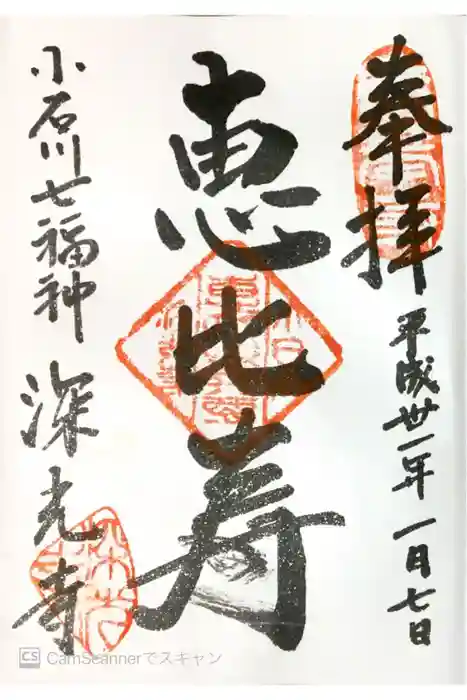 奉拝
平成丗一年一月七日
恵比寿
小石川七福神 深光寺
CS CamScannerでスキャン